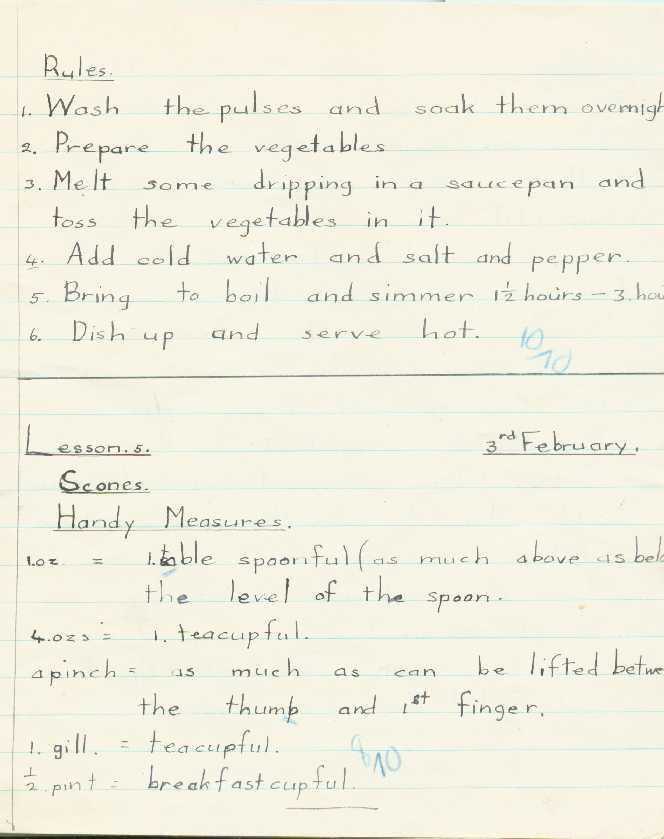 Rules.
1. Wash the pulses and soak them overnigh
2. Prepare the vegetables
3. Melt some dripping in a saucepan and
toss the vegetables in it.
4. Add cold water and salt and pepper.
5. Bring to boil and simmer 1½ hours – 3. hou
6. Dish up and serve hot.
10/10
Lesson. 5. 3rd February.
Scones.
Handy Measures.
1.oz = 1. table spoonful (as much above as belo
the level of the spoon.
4.ozs = 1. teacupful.
a pinch = as much as can be lifted betwe
the thumb and 1st finger.
1. gill. = teacupful.
8/10
½.pint = breakfastcupful.